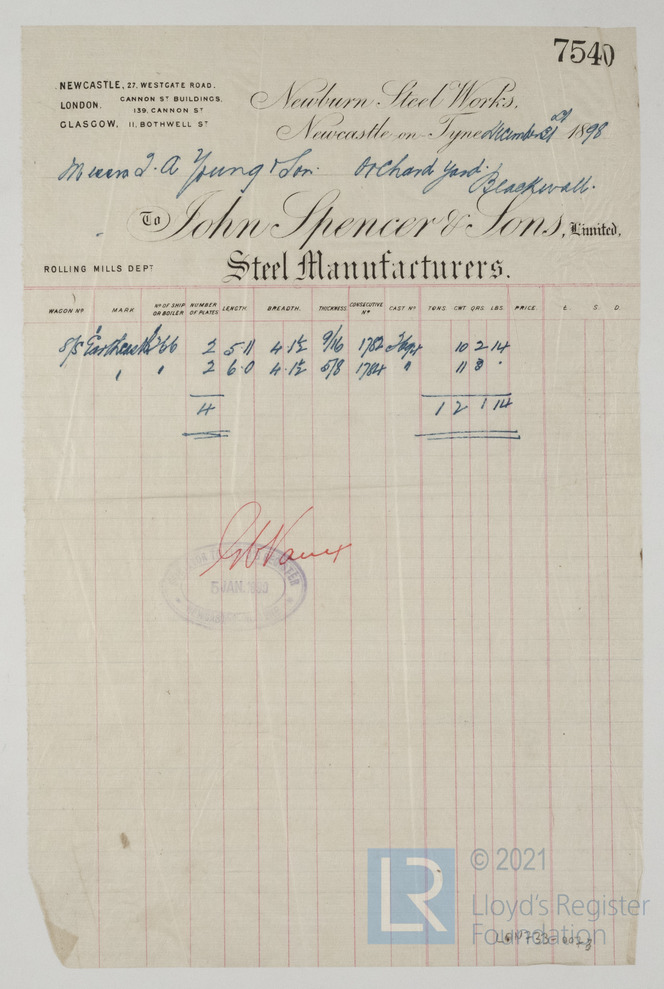 7540
NEWCASTLE, 27, WESTGATE ROAD.
LONDON, CANNON ST BUILDINGS, 139, CANNON ST
GLASGOW, 11, BOTHWELL ST
Newburn Steel Works,
Newcastle on Tyne December 31st 1898
Messrs J. A Young & Son. Orchard Yard.
Blackwall.
To John Spencer & Sons, Limited,
ROLLING MILLS DEPT Steel Manufacturers.
WAGON No MARK No OF SHIP OR BOILER NUMBER OF PLATES LENGTH. BREADTH. THICKNESS CONSECUTIVE No CAST No TONS. CWT QRS. LBS. PRICE. £. S. D.
S/S 66 2 5 11 4. 1½ 9/16 1782 10 2 14
" " 2 6. 0 4. 1½ 5/8 1784 " 11 3 "
4 1 2 1 14
5 JAN
© 2021
LR Lloyd's Register
Foundation